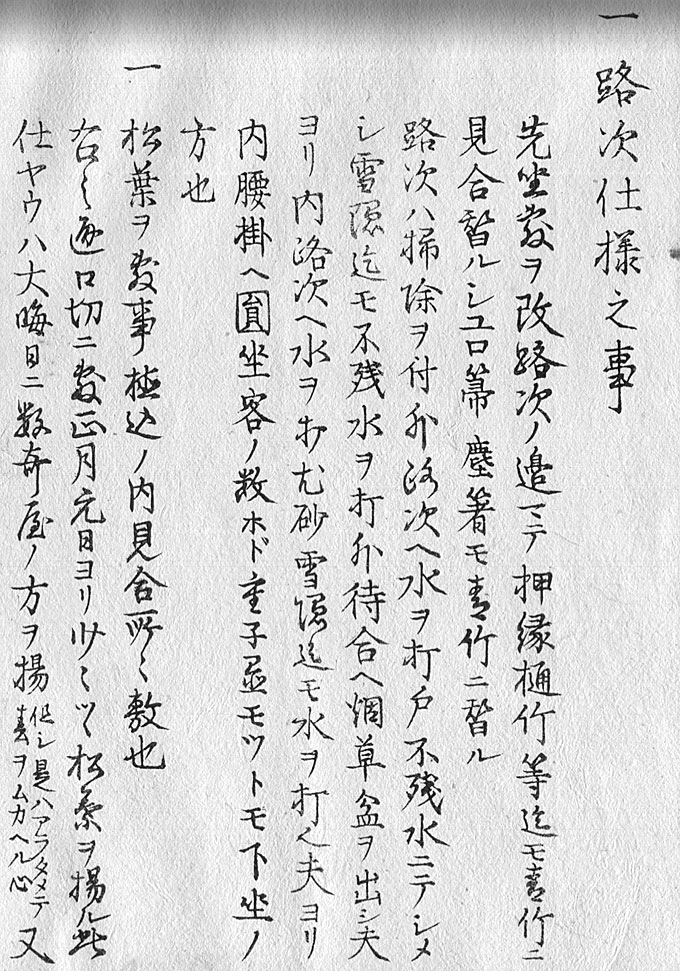 一 路次仕様之事
先坐敷ヲ改路次ノ邉マテ押縁樋竹等迄モ青竹ニ
見合替ルシユロ箒塵箸モ青竹ニ替ル
路次ハ掃除ヲ付外路次ヘ水ヲ打戸不残水ニテシメ
シ雪隠迄モ不残水ヲ打外待合ヘ烟草盆ヲ出シ夫
ヨリ内路次ヘ水ヲ打尤砂雪隠迄モ水ヲ打夫ヨリ
内腰掛ヘ圓坐客ノ数ホド重子置モツトモ下坐ノ
方也
一 松葉ヲ敷事極込ノ内見合所〻敷也
口切ニ敷正月元日ヨリ少〻ツヽ松葉ヲ揚ル此
仕ヤウハ大晦日ニ数奇屋ノ方ヲ揚 但シ是ハアラタメテ春ヲムカヘル心 又